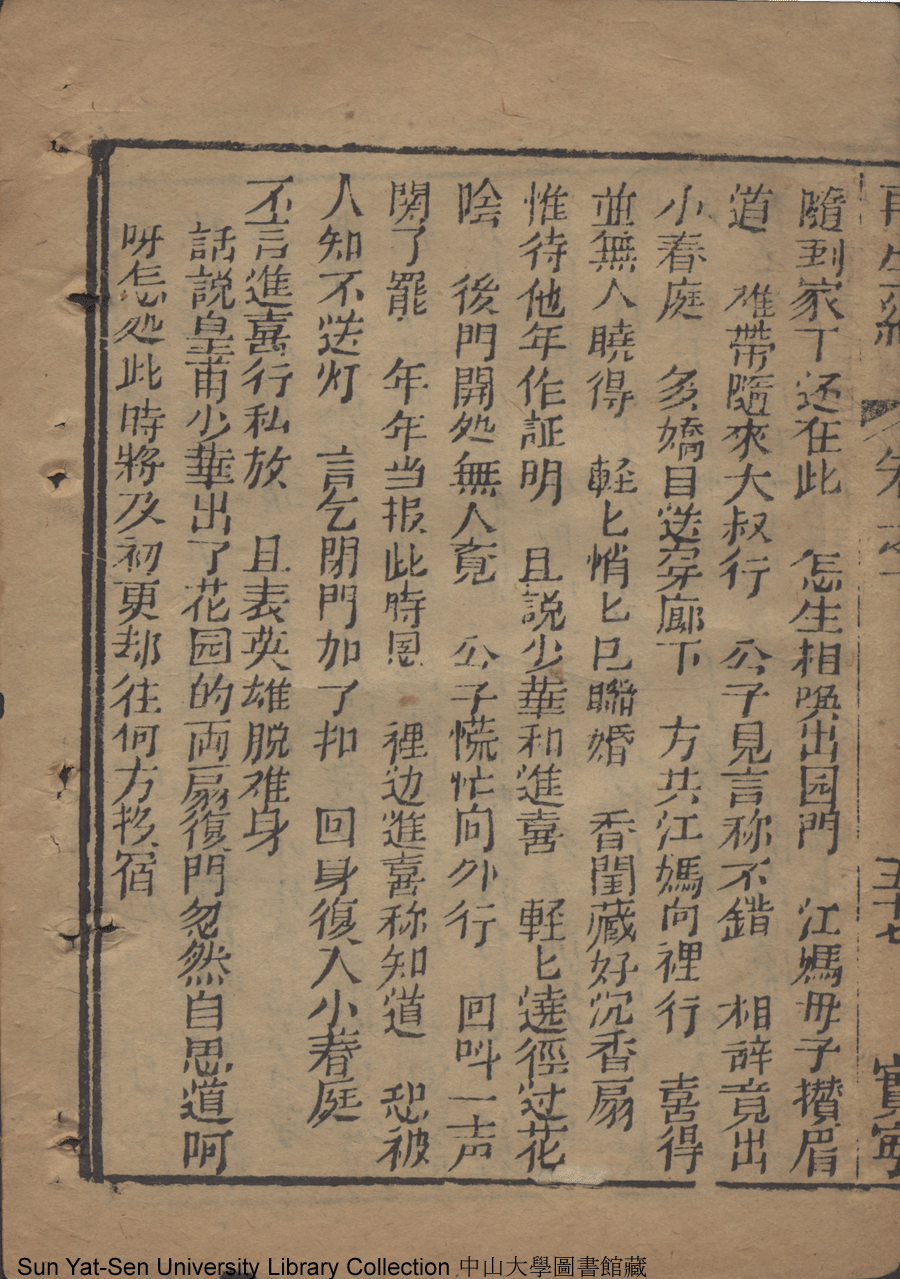 再生緣 卷之 五十七 寶寧
隨到家丁还在此 怎生相喚出园門 江媽毋子攢眉
道 难帶隨來大叔行 公子見言称不錯 相辞竟出
小春庭 多嬌目送穿廊下 方共江媽向裡行 喜得
並無人曉得 軽匕悄匕已聯婚 香閨藏好沉香扇
惟待他年作証明 且説少華和進喜 軽匕遶徑过花
陰 後門開処無人竟 公子慌忙向外行 回呌一声
関了罷 年年当报此時恩 裡边進喜称知道 恐被
人知不送灯 言乞閉門加了扣 回身復入小春庭
不言進喜行私放 且表英雄脱难身
話説皇甫少華出了花园的両扇復門忽然自思道呵
呀怎処此時將及初更却往何方投宿
Sun Yat-Sen University Library Collection 中山大學圖書館藏